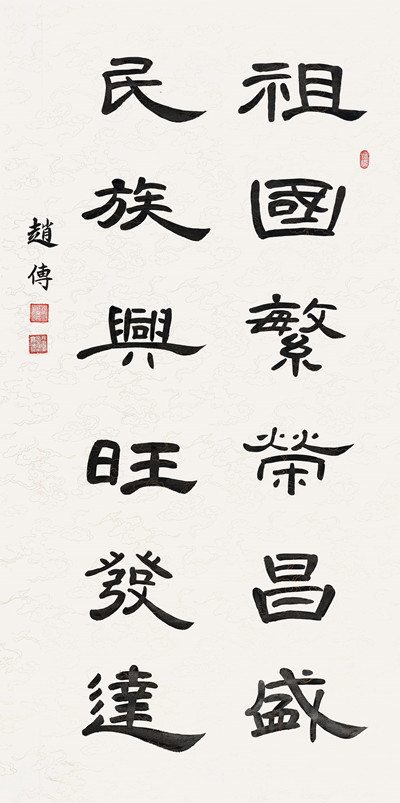 祖國繁榮昌盛
民族興旺發達
趙傳